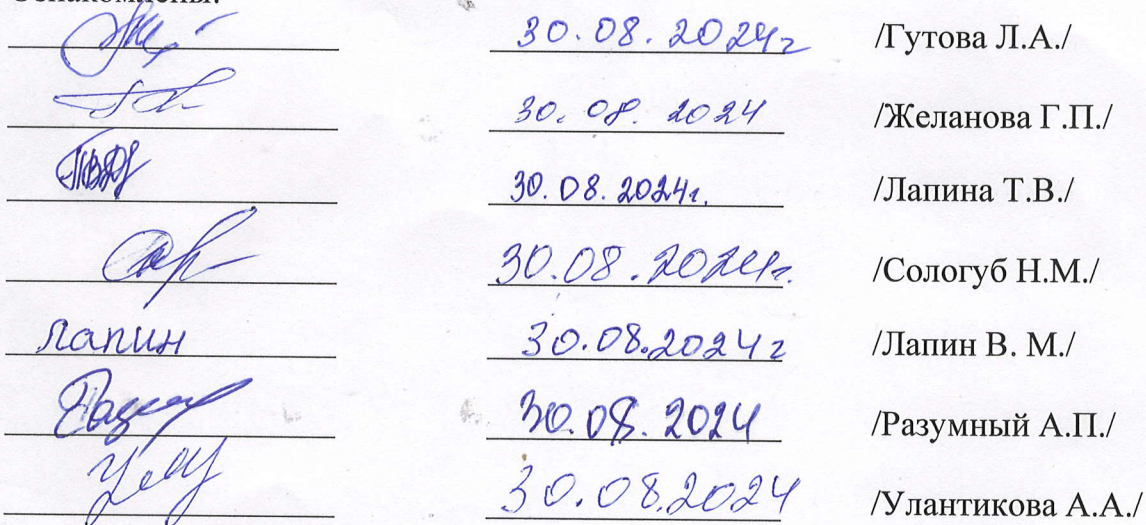 Ознакомлены:
30.08.2024г /Гутова Л.А./
30.08.2024 /Желанова Г.П./
30.08.2024г. /Лапина Т.В./
30.08.2024г. /Сологуб Н.М./
Лапин 30.08.2024г /Лапин В. М./
30.08.2024 /Разумный А.П./
30.08.2024 /Улантикова А.А./